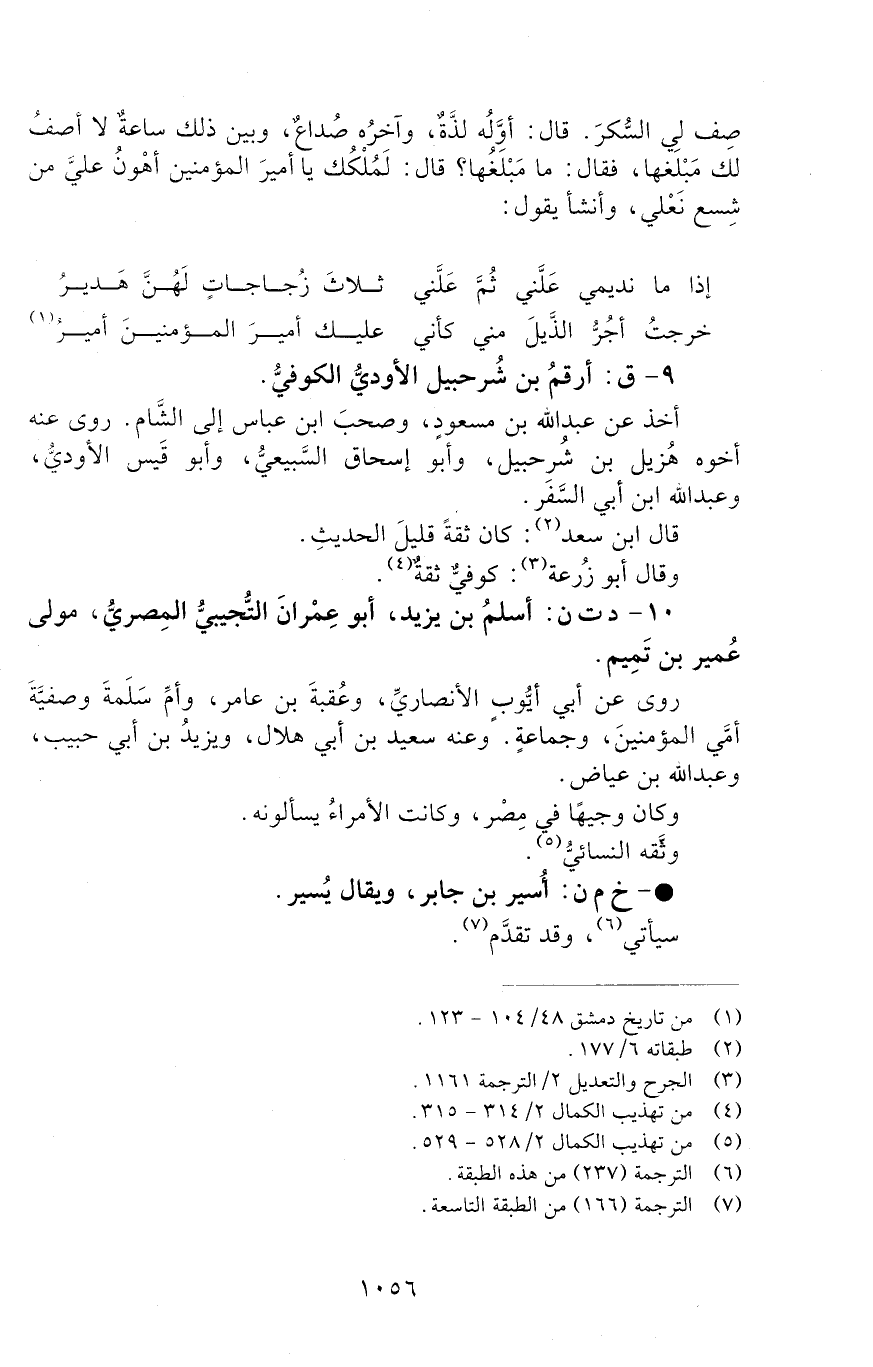 صِف لي السُّكرَ. قال: أوَّلُه لذَّةٌ، وآخرُه صُداعٌ، وبين ذلك ساعةٌ لا أصفُ
لك مَبْلغها، فقال: ما مَبْلغُها؟ قال: لَمُلْكُك يا أميرَ المؤمنين أهْونُ عليَّ من
شِسع نَعْلي، وأنشأ يقول:
إذا ما نديمي عَلَّني ثُمَّ عَلَّني ثلاثَ زُجاجاتٍ لَهُنَّ هَديرُ
خرجتُ أجُرُّ الذَّيلَ مني كأني عليك أميرَ المؤمنينَ أميرُ(١)
٩- ق: أرقمُ بن شُرحبيل الأوديُّ الكوفيُّ.
أخذ عن عبدالله بن مسعودٍ، وصحبَ ابن عباس إلى الشَّام. روى عنه
أخوه هُزيل بن شُرحبيل، وأبو إسحاق السَّبيعيُّ، وأبو قَيس الأوديُّ،
وعبدالله ابن أبي السَّفَر.
قال ابن سعد(٢): كان ثقةً قليلَ الحديثِ.
وقال أبو زُرعة(٣): كوفيٌّ ثقةٌ(٤).
١٠- د ت ن: أسلمُ بن يزيد، أبو عِمْرانَ التُّجيبيُّ المِصريُّ، مولى
عُمير بن تَمِيم.
روى عن أبي أيُّوبٍ الأنصاريِّ، وعُقبةَ بن عامر، وأمِّ سَلَمةَ وصفيَّةَ
أمَّي المؤمنينَ، وجماعةٍ. وعنه سعيد بن أبي هلال، ويزيدُ بن أبي حبيب،
وعبدالله بن عياض.
وكان وجيهًا في مِصْر، وكانت الأمراءُ يسألونه.
وثَّقه النسائيُّ(٥).
●- خ م ن: أُسير بن جابر، ويقال يُسير.
سيأتي(٦)، وقد تقدَّم(٧).
(١) من تاريخ دمشق ٤٨/ ١٠٤ - ١٢٣.
(٢) طبقاته ٦/ ١٧٧.
(٣) الجرح والتعديل ٢/ الترجمة ١١٦١.
(٤) من تهذيب الكمال ٢/ ٣١٤ - ٣١٥.
(٥) من تهذيب الكمال ٢/ ٥٢٨ - ٥٢٩.
(٦) الترجمة (٢٣٧) من هذه الطبقة.
(٧) الترجمة (١٦٦) من الطبقة التاسعة.
١٠٥٦